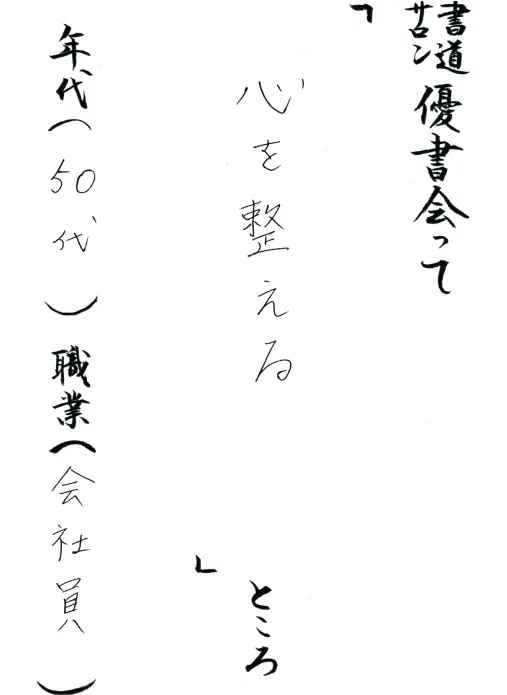 書道サロン 優書会って
「
心を整える
」ところ
年代（50代）職業（会社員）